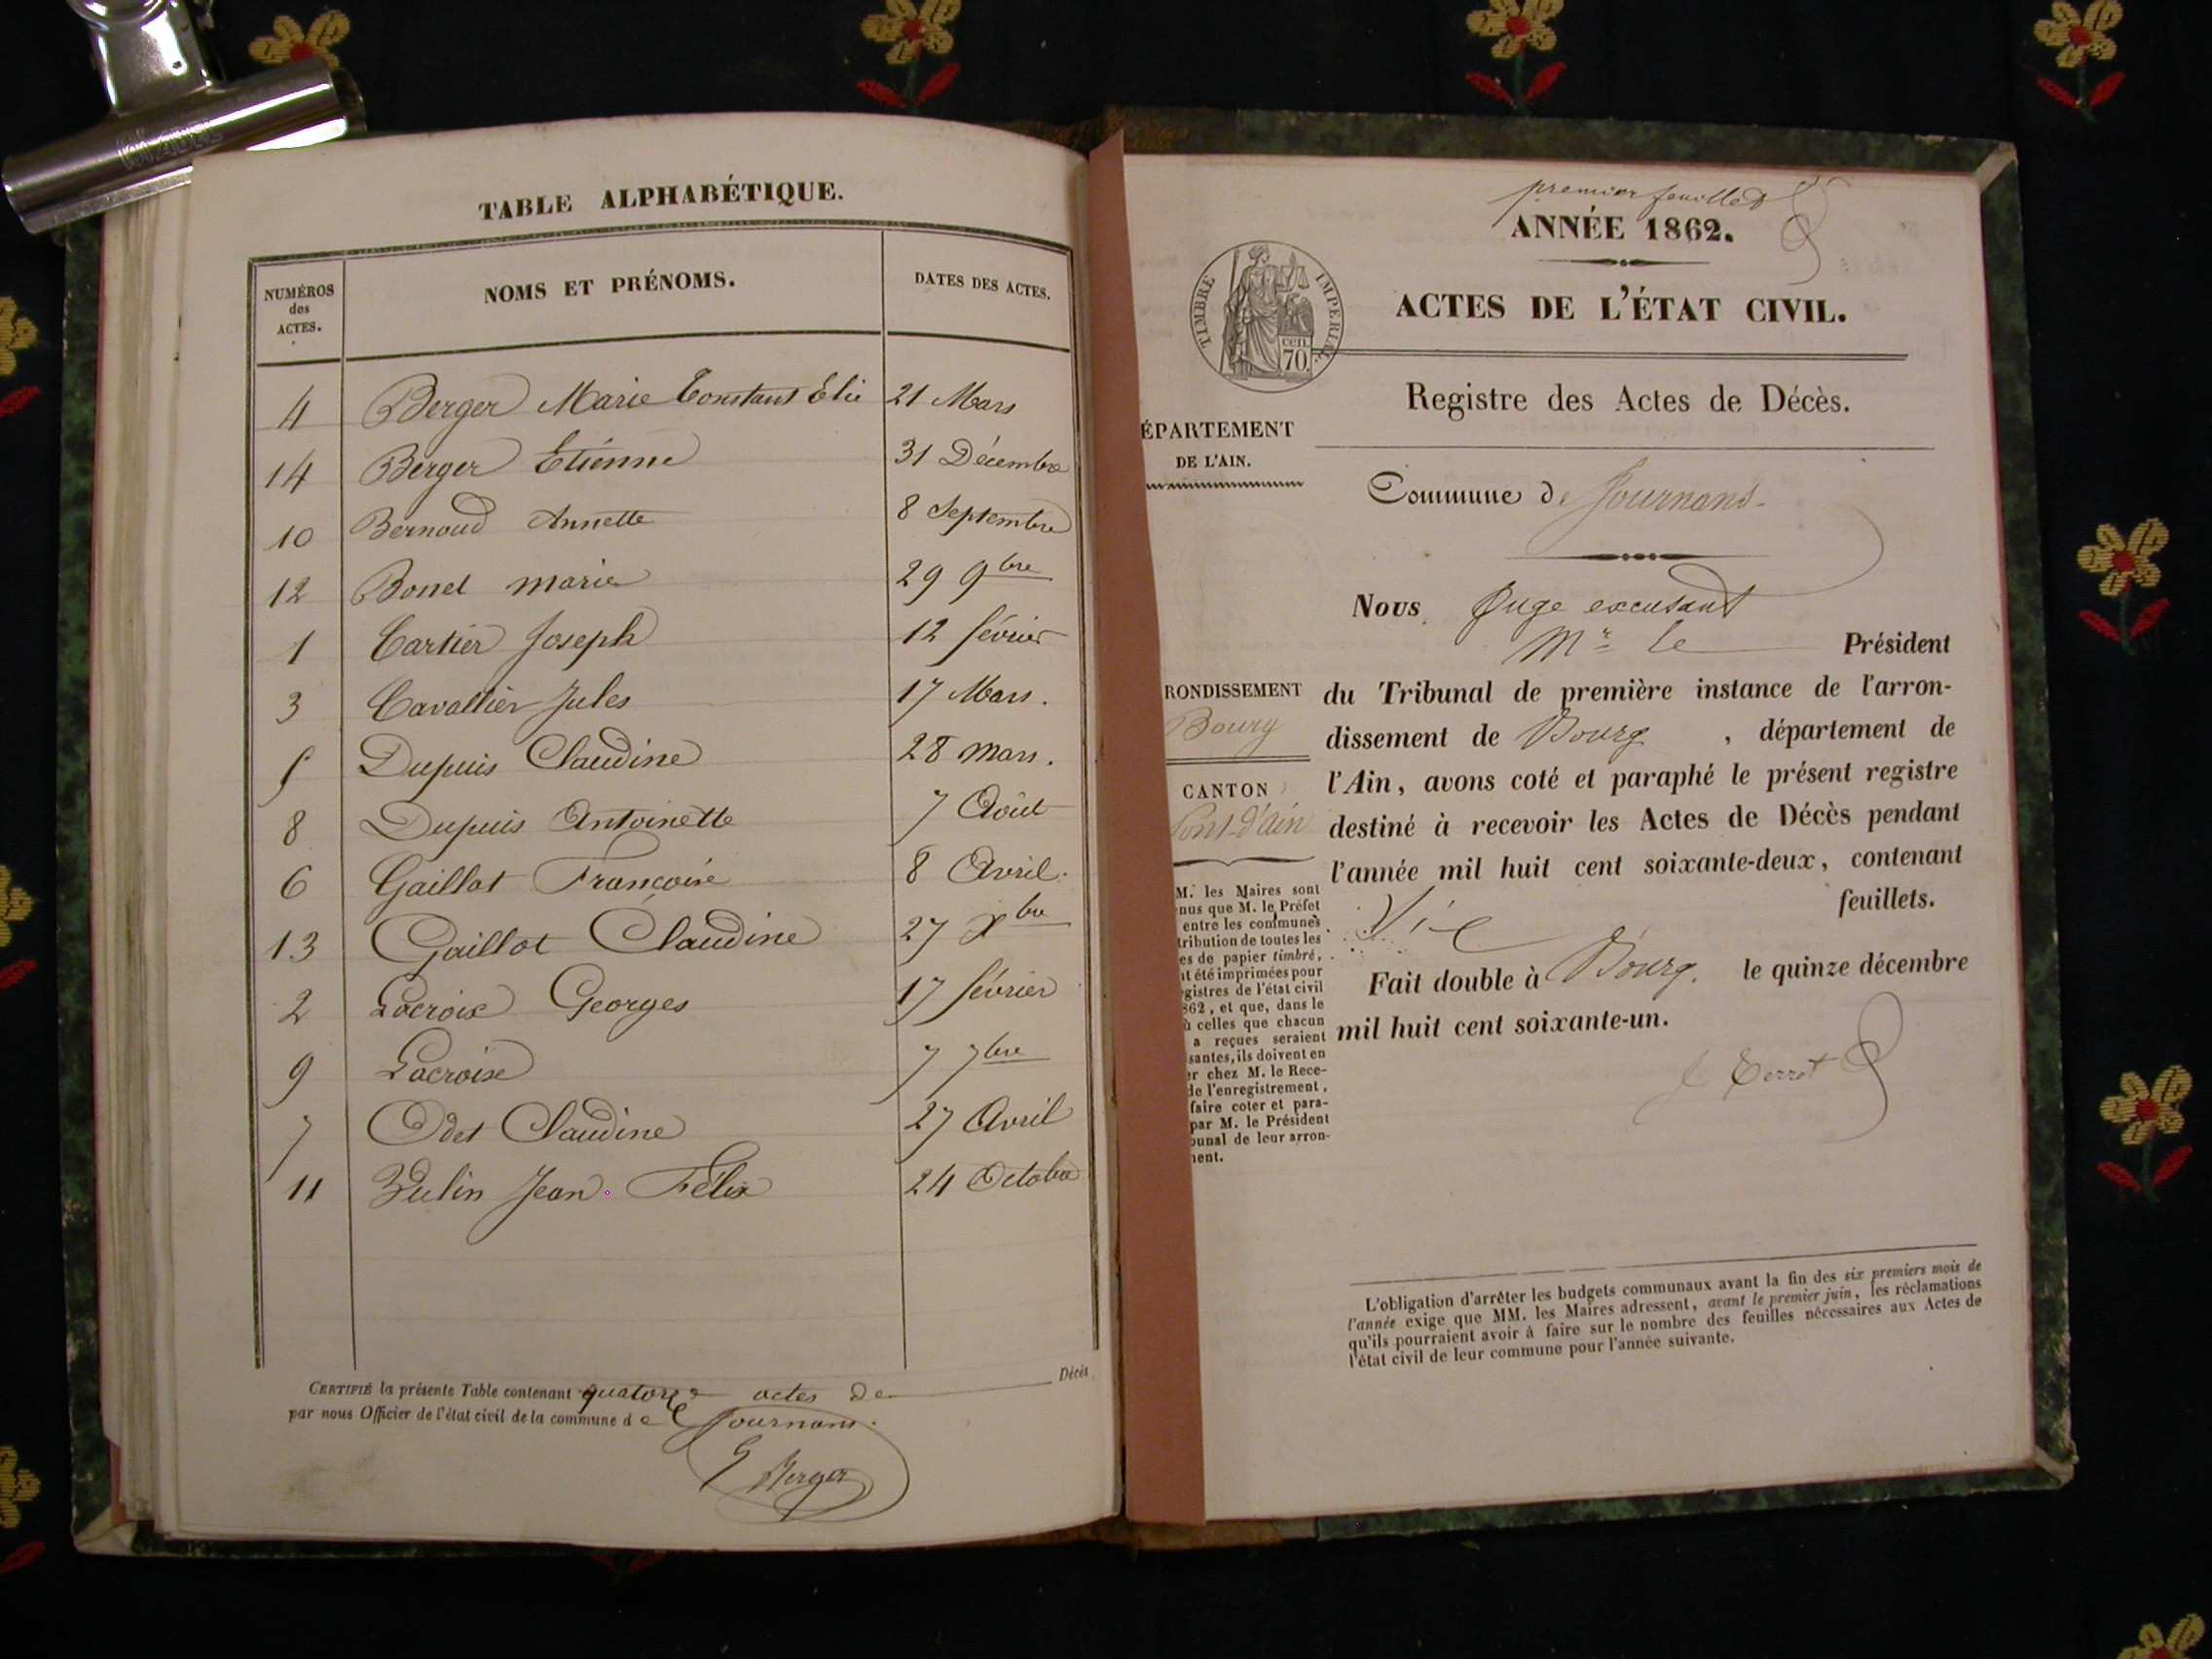 TABLE ALPHABÉTIQUE.
NUMÉROS des ACTES.
NOMS ET PRÉNOMS.
DATES DES ACTES.
4 Berger Marie Constant Elie 21 Mars
14 Berger Etienne 31 Décembre
10 Bernoud Annette 8 Septembre
12 Bonet Marie 29 9bre
1 Cartier Joseph 12 février
3 Cavallier Jules 17 Mars.
5 Dupuis Claudine 28 Mars.
8 Dupuis Antoinette 7 Août
6 Gaillot Françoise 8 Avril.
13 Gaillot Claudine 27 Xbre
2 Lacroix Georges 17 février
9 Lacroix 7 7bre
7 Odet Claudine 27 Avril
11 Vulin Jean Félix 24 Octobre
CERTIFIÉ la présente Table contenant quatorze actes de Décès
par nous Officier de l'état civil de la commune de Journans.
Berger
premier feuillet
ANNÉE 1862.
TIMBRE IMPERIAL
70 cen
ACTES DE L'ÉTAT CIVIL.
Registre des Actes de Décès.
ÉPARTEMENT
DE L'AIN.
Commune de Journans.
Nous, Juge excusant
Mr le Président
du Tribunal de première instance de l'arron-
dissement de Bourg, département de
l'Ain, avons coté et paraphé le présent registre
destiné à recevoir les Actes de Décès pendant
l'année mil huit cent soixante-deux, contenant
feuillets.
Fait double à Bourg, le quinze décembre
mil huit cent soixante-un.
RONDISSEMENT
Bourg
CANTON
Pont-d'ain
M. les Maires sont
nus que M. le Préfet
entre les communes
tribution de toutes les
es de papier timbré,
nt été imprimées pour
gistres de l'état civil
862, et que, dans le
ù celles que chacun
a reçues seraient
santes, ils doivent en
er chez M. le Rece-
de l'enregistrement,
faire coter et para-
par M. le Président
bunal de leur arron-
ment.
L'obligation d'arrêter les budgets communaux avant la fin des six premiers mois de
l'année exige que MM. les Maires adressent, avant le premier juin, les réclamations
qu'ils pourraient avoir à faire sur le nombre des feuilles nécessaires aux Actes de
l'état civil de leur commune pour l'année suivante.